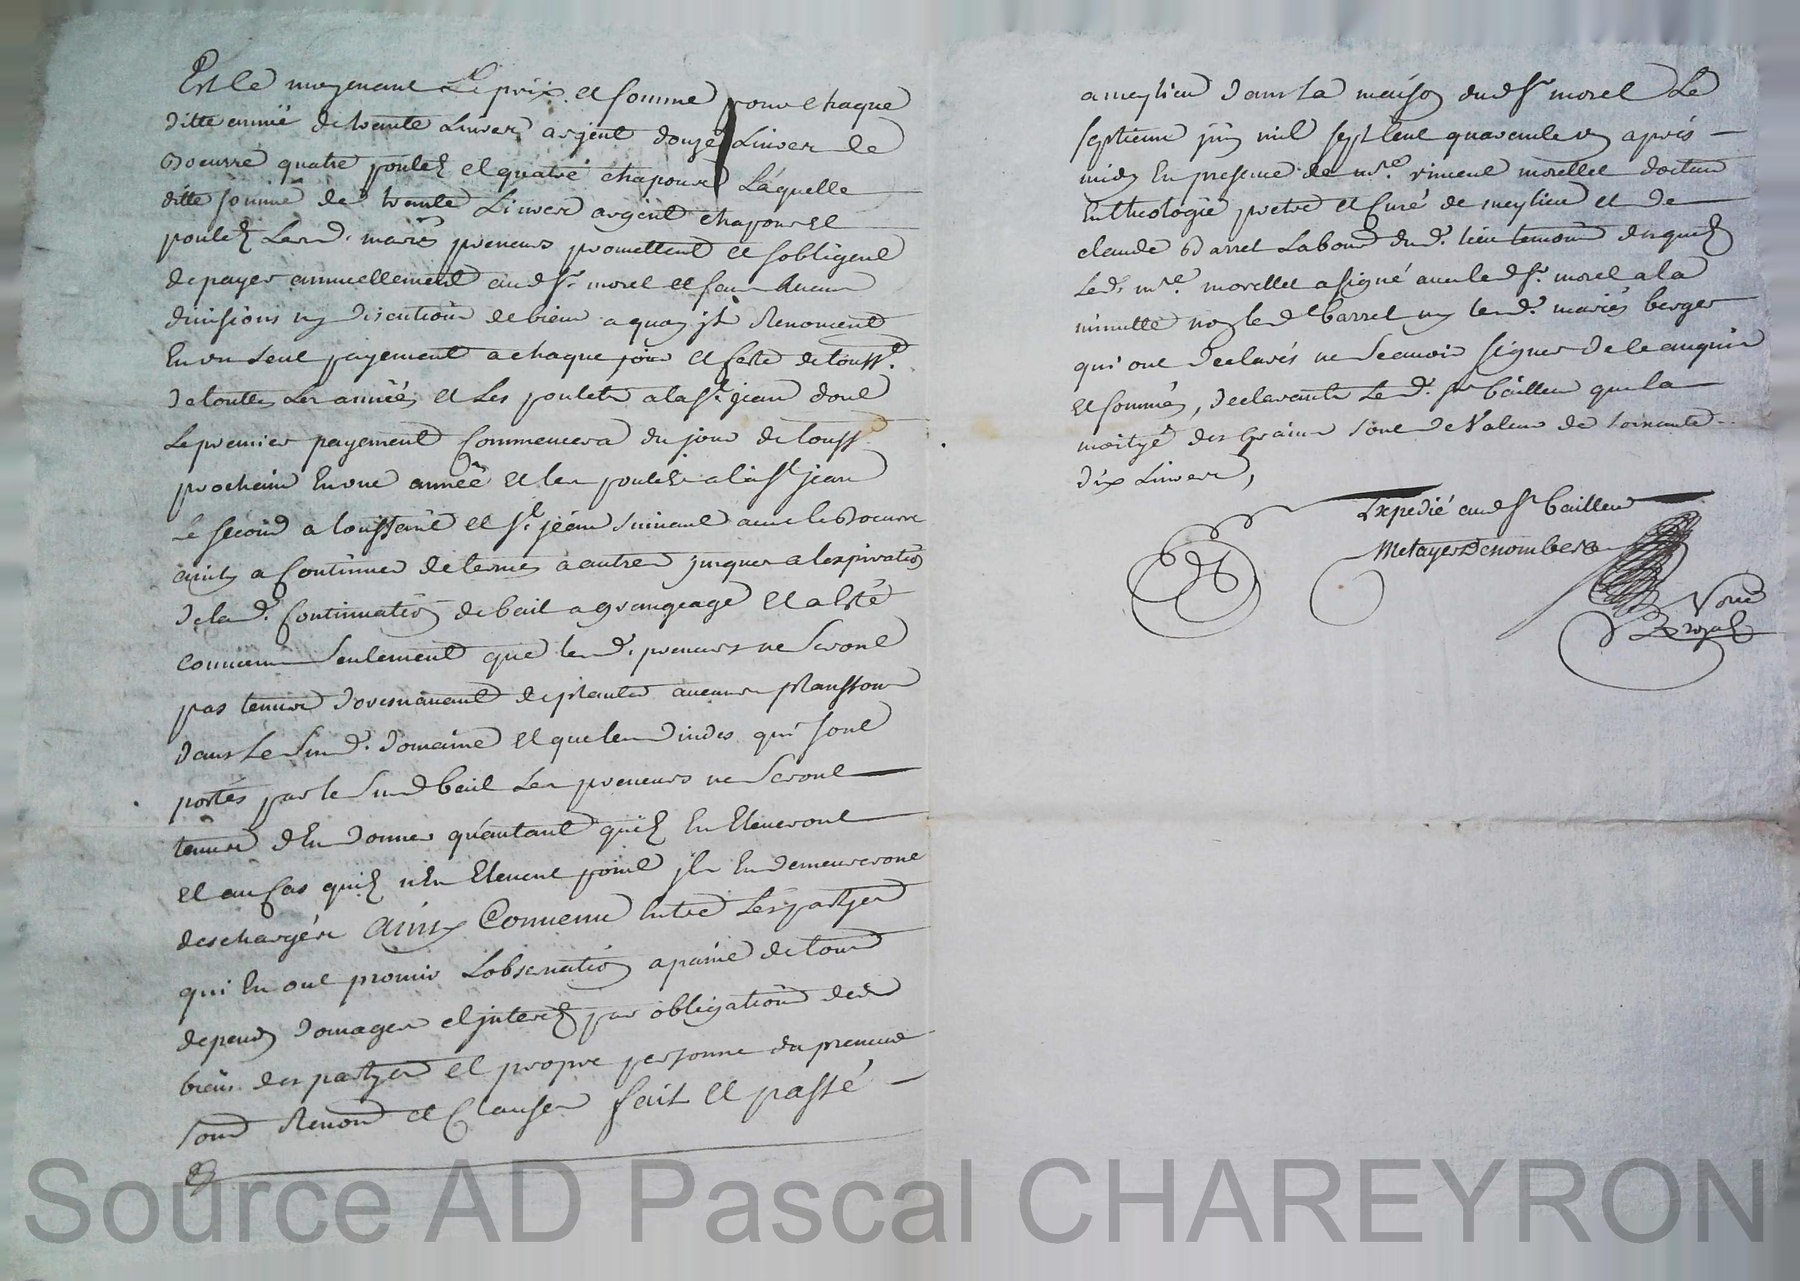 Et ce moyenant Le prix et somme pour chaque
ditte année de trante Livres argent douze Livres de
Boeurre quatre poulles et quatre chapons Laquelle
ditte somme de trente Livres argent chapons et
poulles Lesd. mariés preneurs promettent et sobligent
de payer annuellement aud Sr. morel et sans Aucune
divisions ny discution de biens a quoy ils Renoncent
En un seul payement a chaque jour et feste de touss.
de touttes Les années et Les poulets a la St. jean dont
Le premier payement Commencera du jour de touss
prochain En une année et les poulets a la St jean
Le second a toussaint et St. jean suivant avec le Boeurre
ainsy a Continuer de termes a autres jusques a lexpiration
de lad. Continuation de bail a grangeage Et a Esté
convenu seulement que lesd. preneurs ne seront
pas tenus doresnavant de planter aucuns planssons
dans le susd. domaine et que les dindes qui sont
portés par le susd bail Les preneurs ne seront
tenus d'En donner qu'autant quils En Eleveront
et au Cas quils n'En Elevent point ils En demeureront
deschargés ainsy Convenu Entre Les partyes
qui En ont promis Lobservation a peine de tous
depens domages et jnterests par obligation de
biens des partyes et propre personne du preneur
sous Renon et Clauses fait et passé
a meylieu dans La maison dud Sr morel Le
septieme juin mil sept cent quarante un après
midy En presence de mre. vincent morellet docteur
En theologie pretre et Curé de meylieu et de
claude Barret Labour dud. lieu temoins desquels
Led. mre. morellet a signé avec led Sr. morel a la
minutte non led Barret ny lesd. mariés berger
qui ont declarés ne scavoir signer de ce enquis
et sommés, declarants Led. Sr bailleur que la
moityé des Grains sont de Valeur de soixante
dix Livres,
Expedié aud Sr bailleur
Metayer Denombera
Noré
Royal
Source AD Pascal CHAREYRON